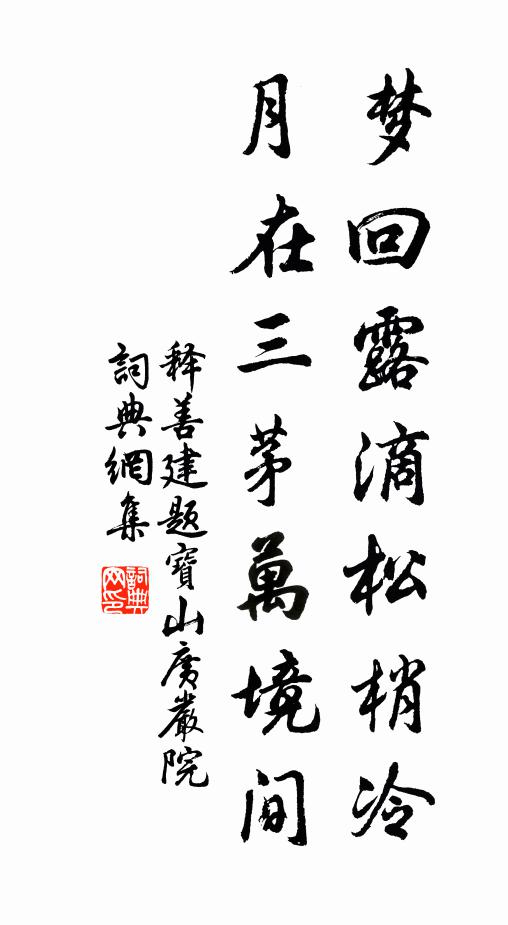 梦回露滴松梢冷
月在三茅萬境间
释善建题寶山广嚴院
詞典網集
詞典
网印